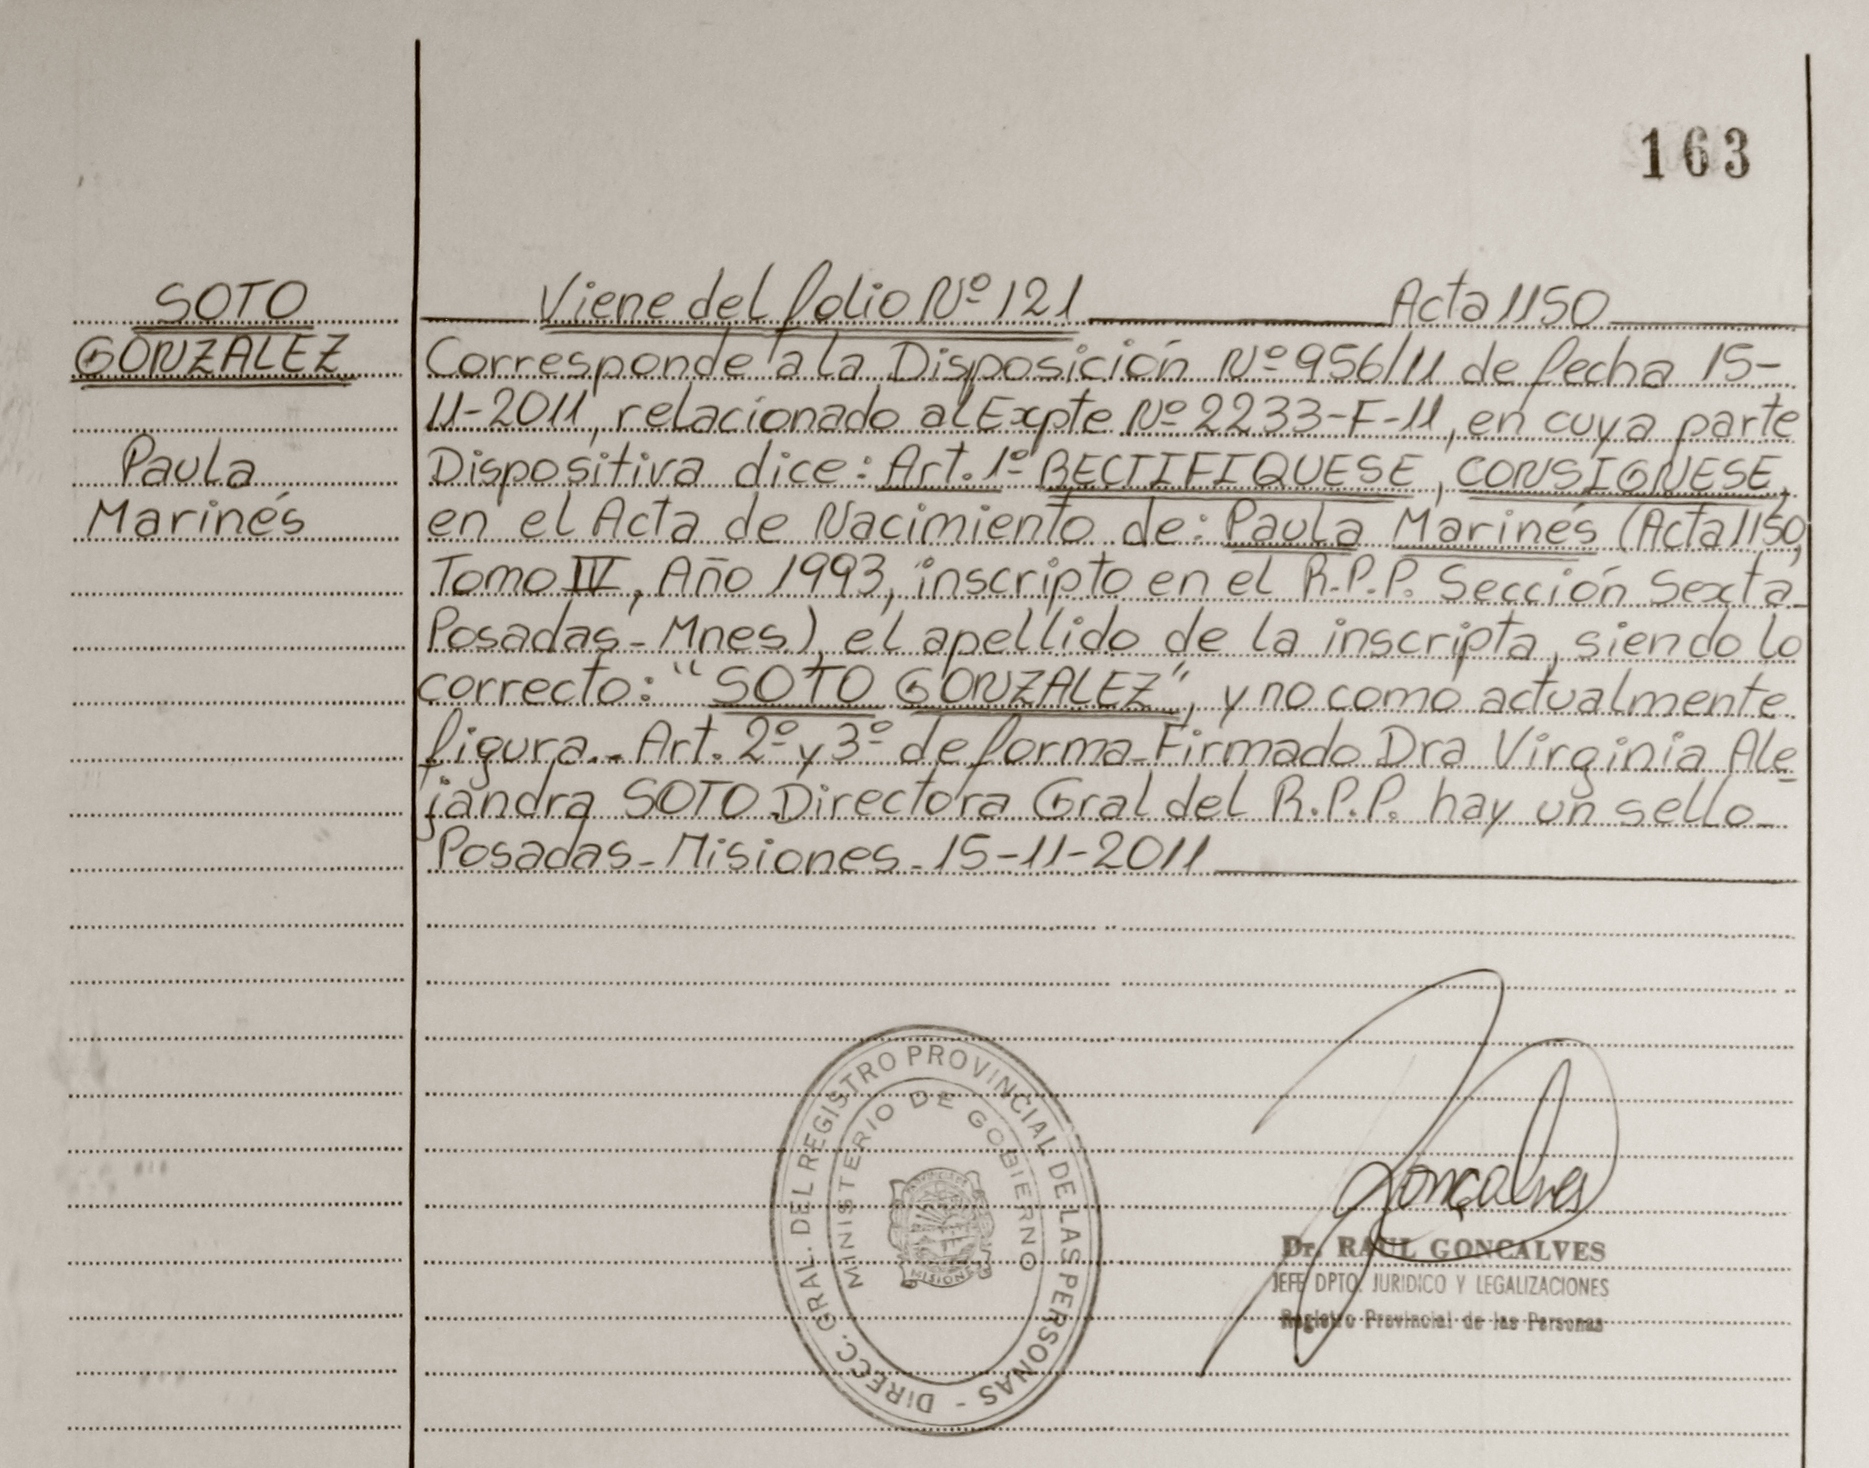 163
SOTO
GONZALEZ
Paula
Marinés
Viene del folio Nº 121 Acta 1150
Corresponde a la Disposición Nº 956/11 de fecha 15-
11-2011, relacionado al Expte Nº 2233-F-11, en cuya parte
Dispositiva dice: Art. 1º RECTIFIQUESE, CONSIGNESE,
en el Acta de Nacimiento de: Paula Marinés (Acta 1150,
Tomo IV, Año 1993, inscripto en el R.P.P. Sección Sexta-
Posadas-Mnes.), el apellido de la inscripta, siendo lo
correcto: "SOTO GONZALEZ", y no como actualmente
figura.- Art. 2º y 3º de forma-Firmado Dra Virginia Ale
jandra SOTO Directora Gral del R.P.P. hay un sello-
Posadas-Misiones-15-11-2011
DIRECC. GRAL. DEL REGISTRO PROVINCIAL DE LAS PERSONAS -
MINISTERIO DE GOBIERNO
MISIONES
Gonçalves
Dr. RAUL GONCALVES
JEFE DPTO. JURIDICO Y LEGALIZACIONES
Registro Provincial de las Personas